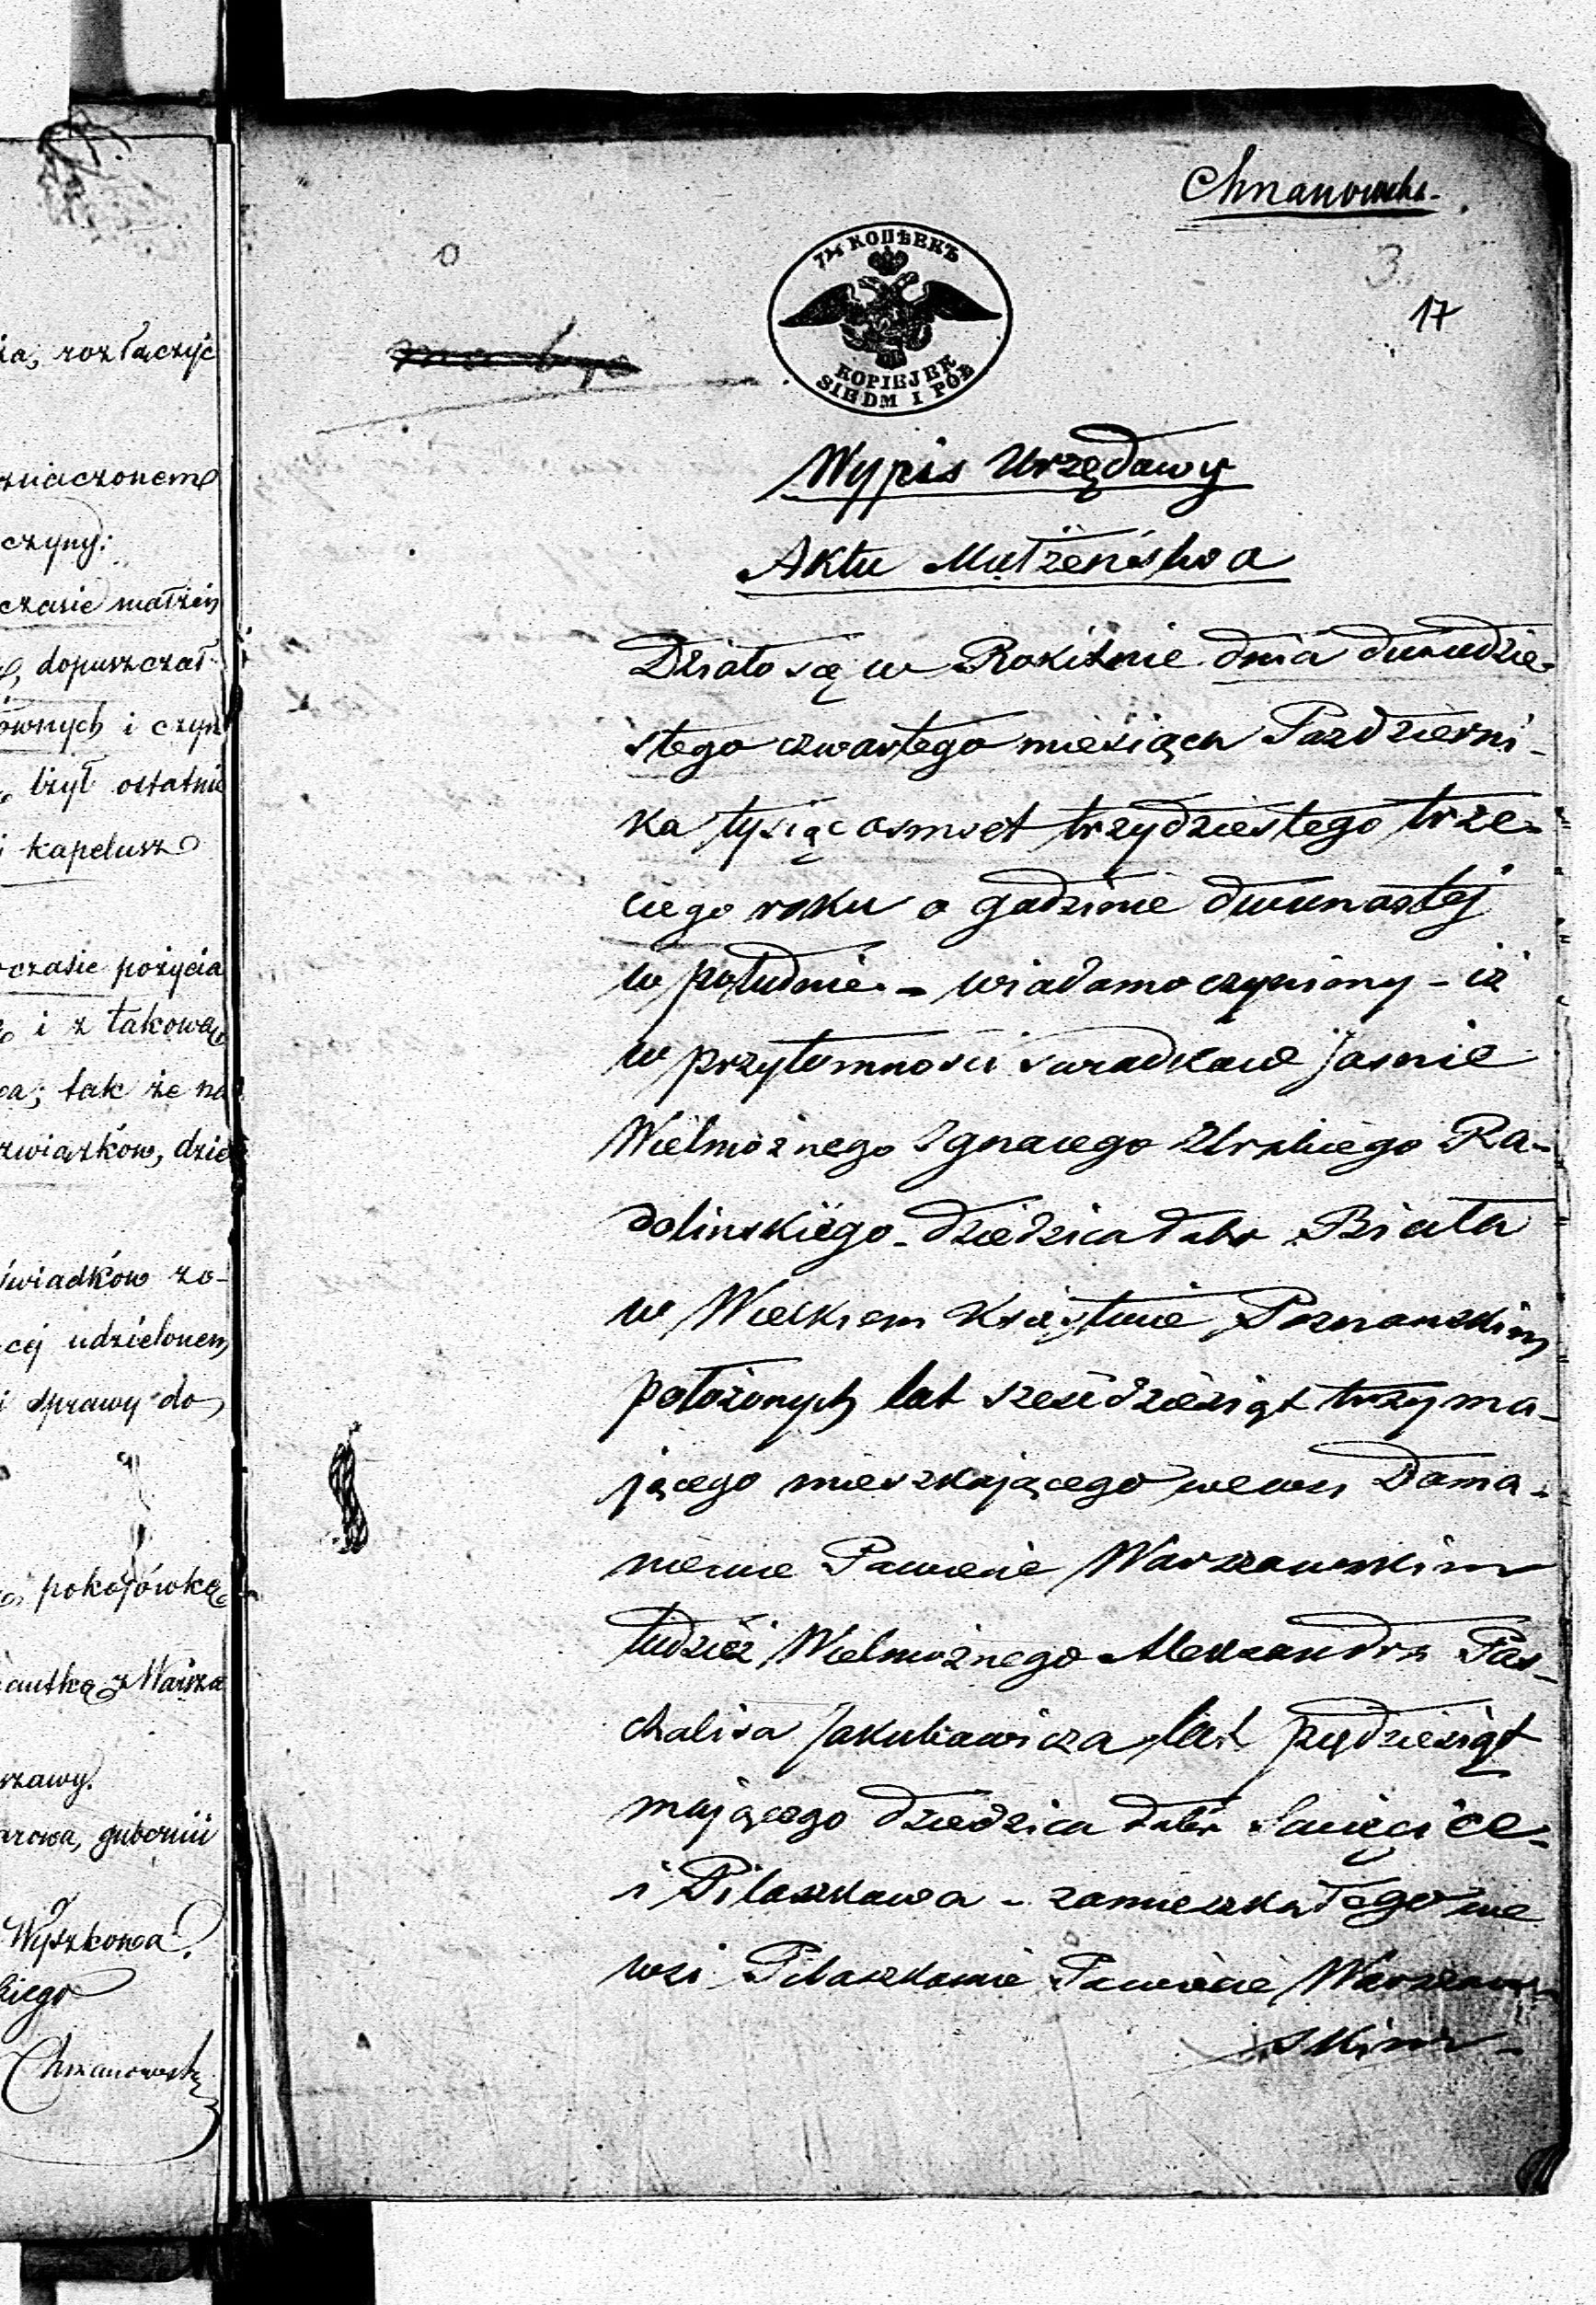 ia, rozłączyć
znaczonem
czyny:
czasie małżeń
dopuszczał
ównych i czyn
był ostatnie
i kapelusz
czasie pożycia
i z takową
ca; tak że na
związków, dzie
świadków zo-
cej udzielonem
i sprawy do
pokojówkę
iantkę z Warsza
rszawy.
arowa, gubernii
Wyszkowa.
kiego
Chmanowsk
Chmanowska.
3.
17
7½ КОПѢЕКЪ
KOPIEJEK
SIEDM I PÓŁ
Wypis Urzędowy
Aktu Małżeństwa
Działo się w Rokitnie dnia dwudzie-
stego czwartego miesiąca Pazdzierni-
ka tysiąc osmset trzydziestego trze-
ciego roku o godzinie dwunastej
w południe. – wiadomo czynimy – iż
w przytomności swiadkow Jaśnie
Wielmożnego Ignacego Urskiego Ra-
dolinskiego – dziedzica dobr Biała
w Wielkiem Księstwie Poznanskim
położonych lat sześćdziesiąt trzy ma-
jącego mieszkającego we wsi Doma-
niewie Powiecie Warszawskim
tudzież Wielmożnego Alexandra Pas-
chalisa Jakubowicza lat pędziesiąt
mającego dziedzica dobr Swięcice
i Pilaszkowa – zamieszkałego we
wsi Pilaszkowie Powiecie Warszaw-
skim –